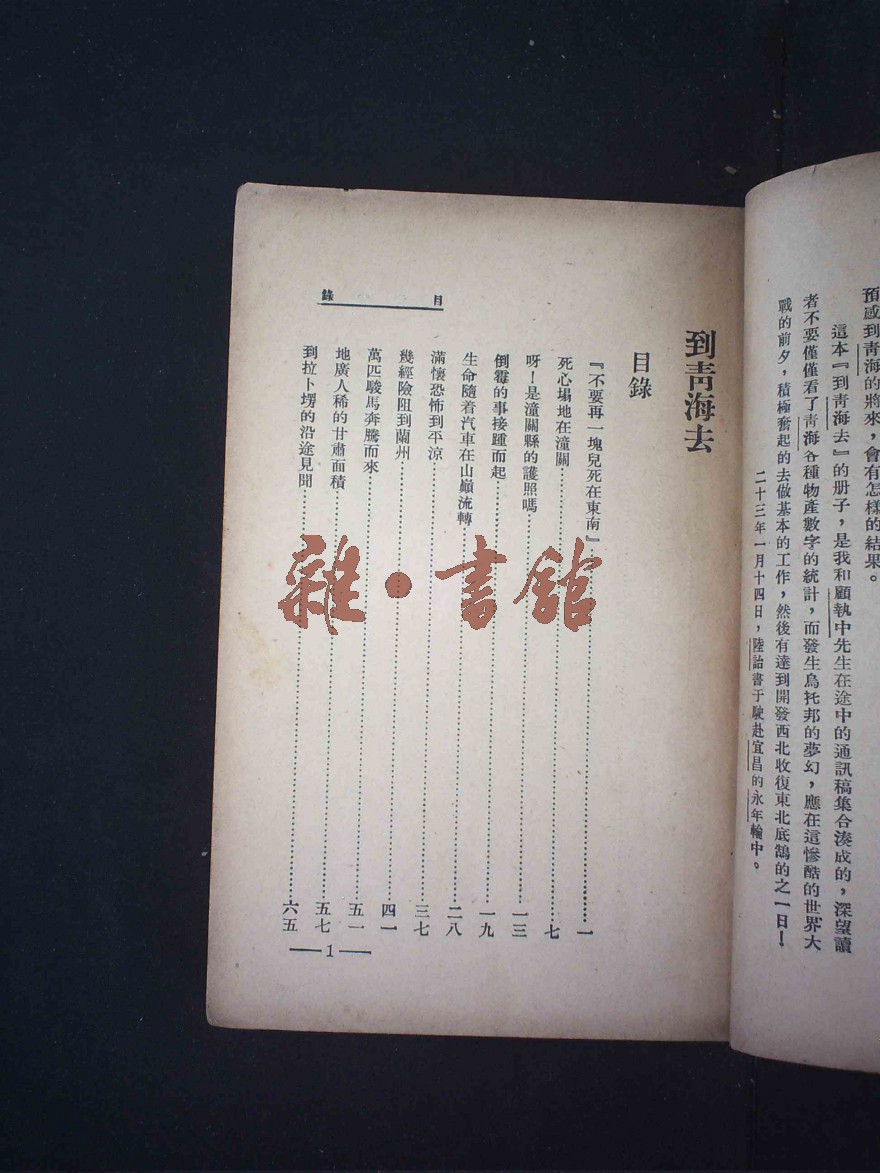 預感到青海的將來，會有怎樣的結果。
這本『到青海去』的册子，是我和顧執中先生在途中的通訊稿集合湊成的，深望讀
者不要僅僅看了青海各種物產數字的統計，而發生烏托邦的夢幻，應在這慘酷的世界大
戰的前夕，積極奮起的去做基本的工作，然後有達到開發西北收復東北底鵠的之一日！
二十三年一月十四日，陸詒書于駛赴宜昌的永年輪中。
到青海去
目錄
目錄
『不要再一塊兒死在東南』 一
死心塌地在潼關 七
呀！是潼關縣的護照嗎 一三
倒霉的事接踵而起 一九
生命隨着汽車在山巔流轉 二八
滿懷恐怖到平涼 三七
幾經險阻到蘭州 四一
萬匹駿馬奔騰而來 五一
地廣人稀的甘肅面積 五七
到拉卜塄的沿途見聞 六五
1
雜·書館